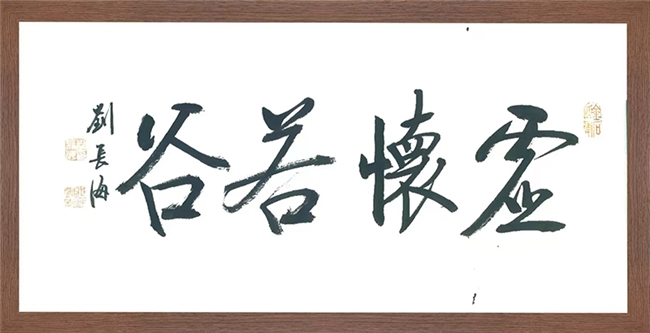 虛懷若谷
劉長海